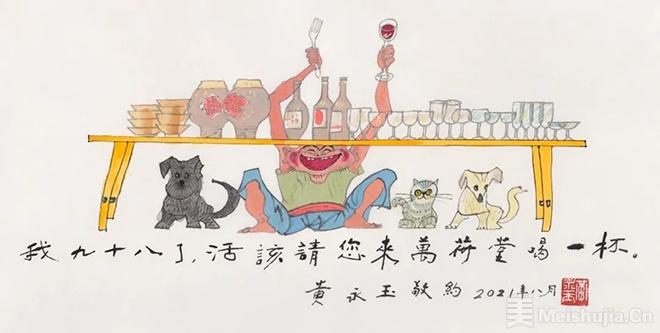 我九十八了,活該請您來萬荷堂喝一杯。
黃永玉敬約 2021年八月
美 Meishujia.Cn